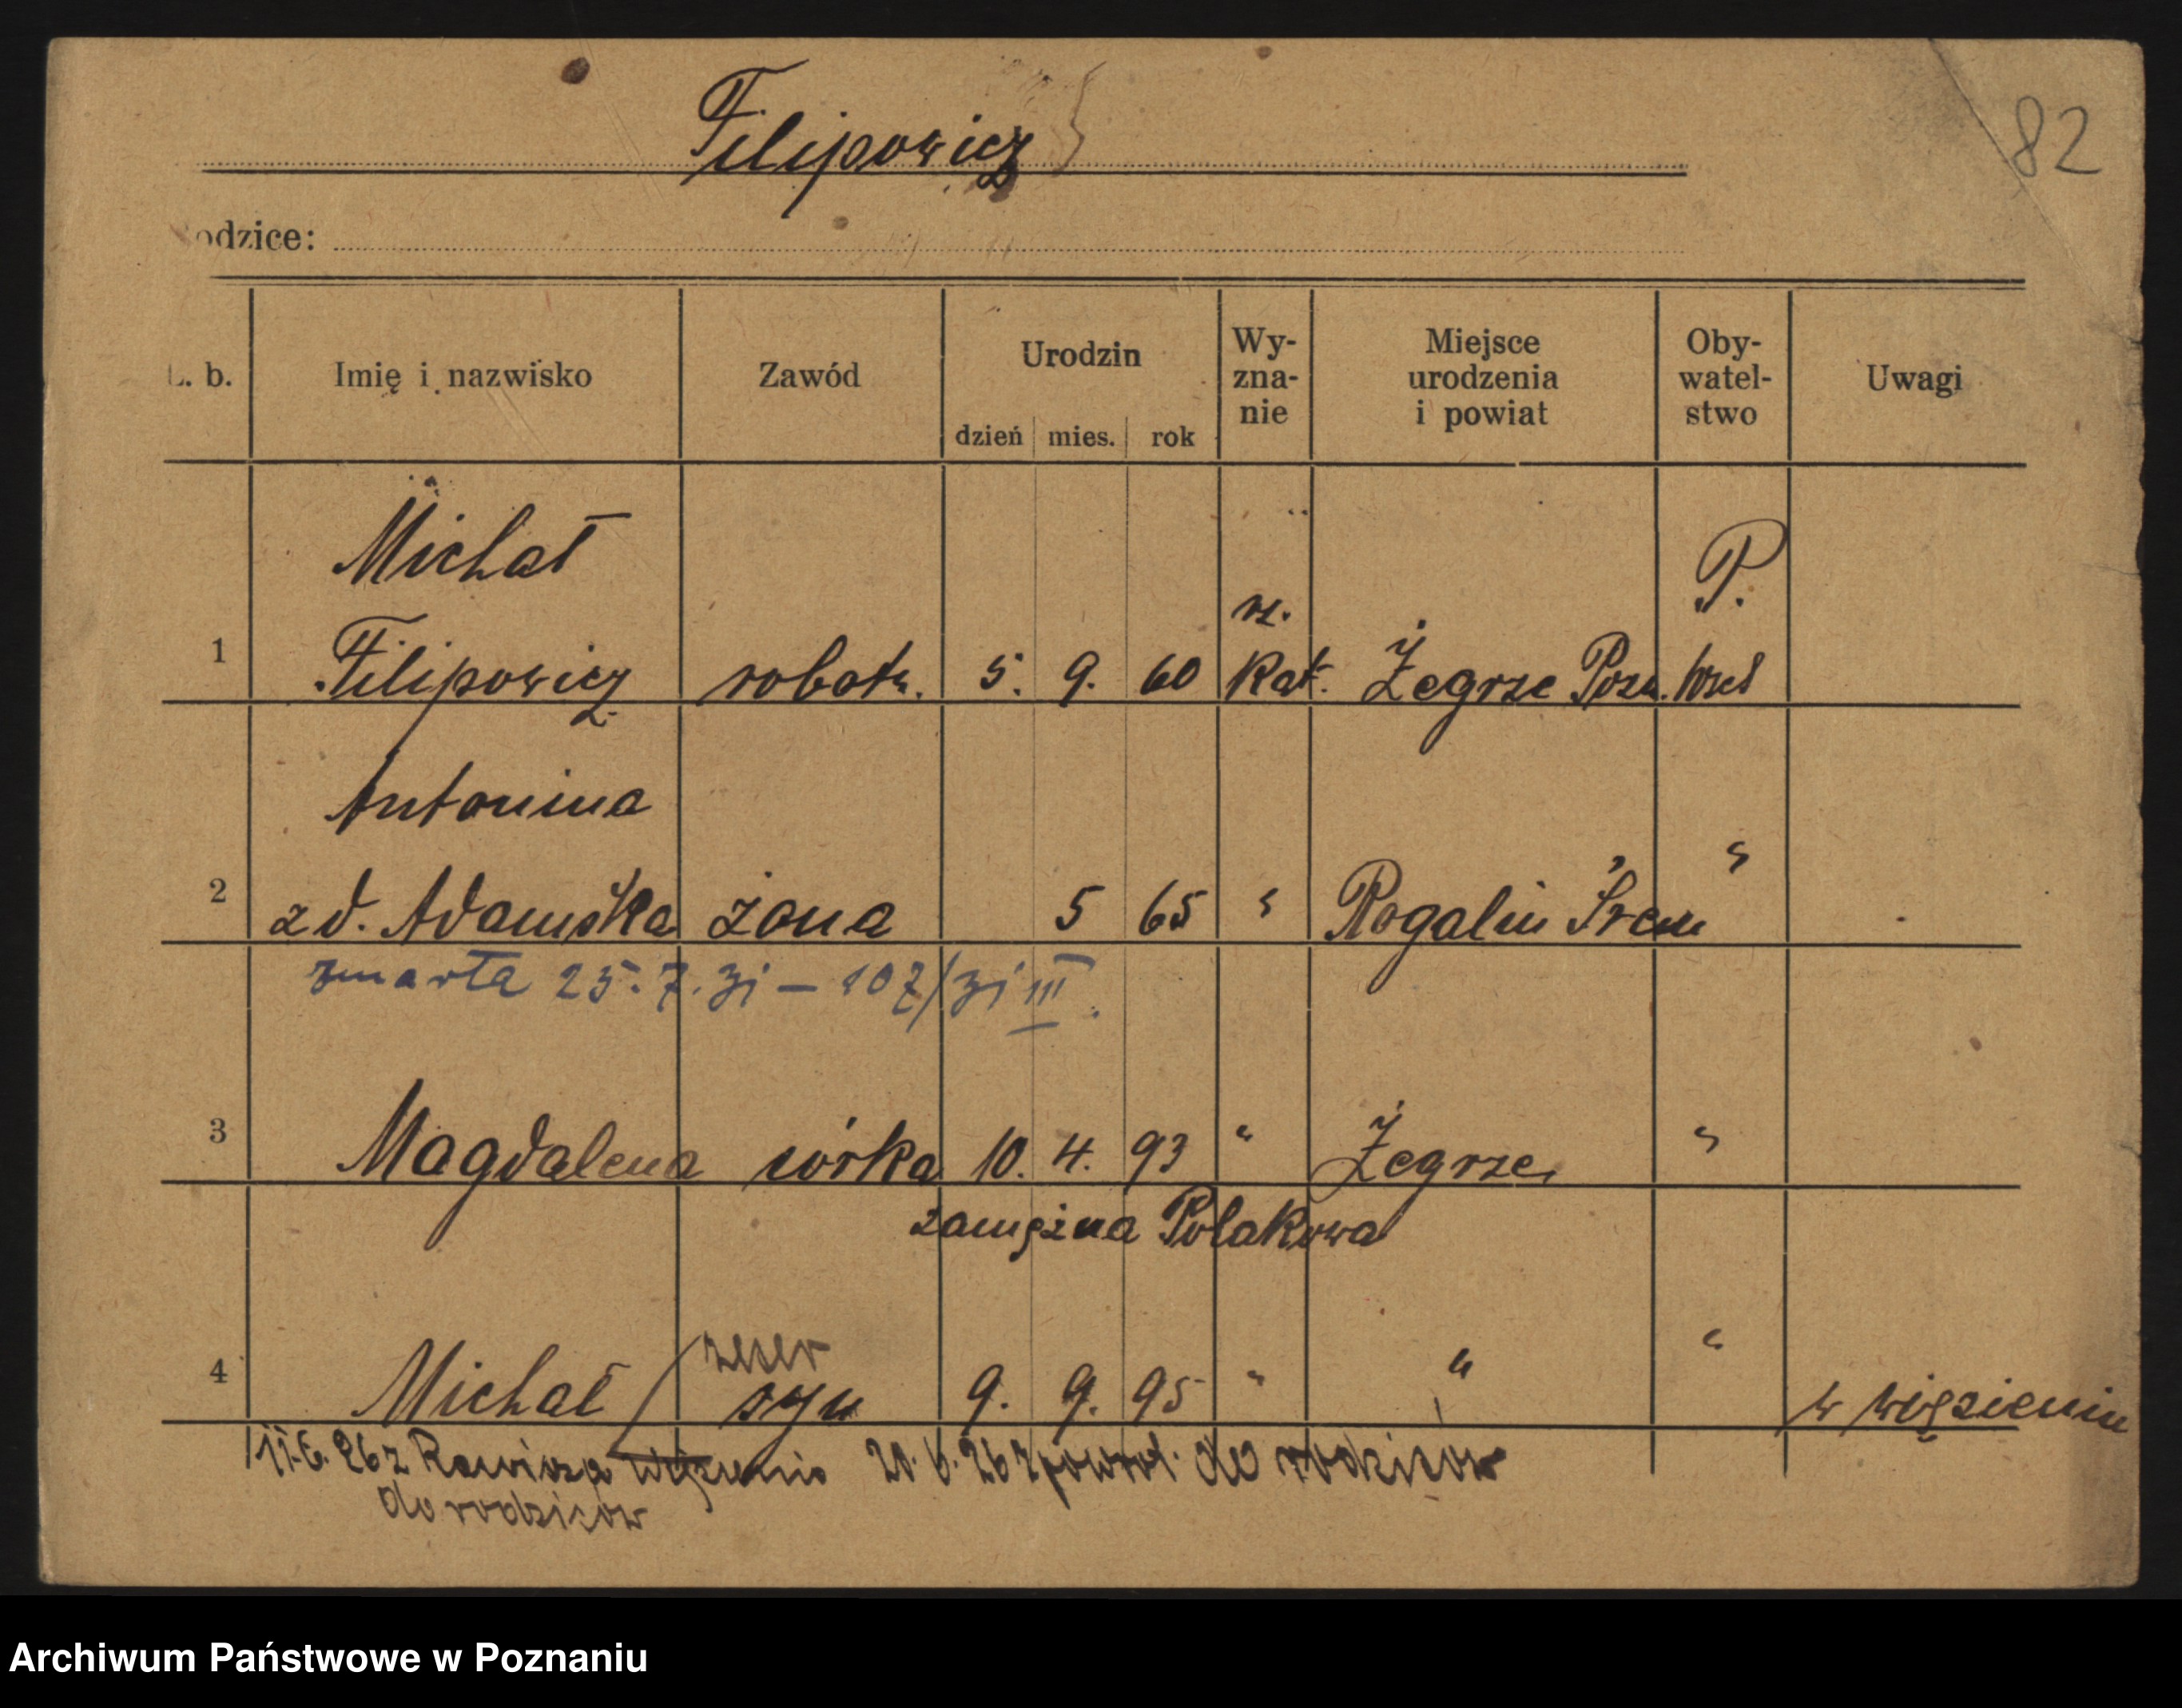 Filipowicz
82
odzice:
L. b. Imię i nazwisko Zawód Urodzin dzień mies. rok Wy-zna-nie Miejsce urodzenia i powiat Oby-watel-stwo Uwagi
Michał
P.
rz.
1 Filipowicz robotn. 5. 9. 60 Kat. Żegrze Pozn.
Antonina
2 zd. Adamska żona 5 65 " Rogalin Śrem "
zmarła 25. 7. 31 – 107/31 III.
3 Magdalena córka 10. 4. 93 " Żegrze "
zamężna Polakowa
4 Michał / syn 9. 9. 95 " " " w więzieniu
11.6. 26 z Rawicza więzienia 20. 6. 26 z powrot. do rodziców
do rodziców
Archiwum Państwowe w Poznaniu